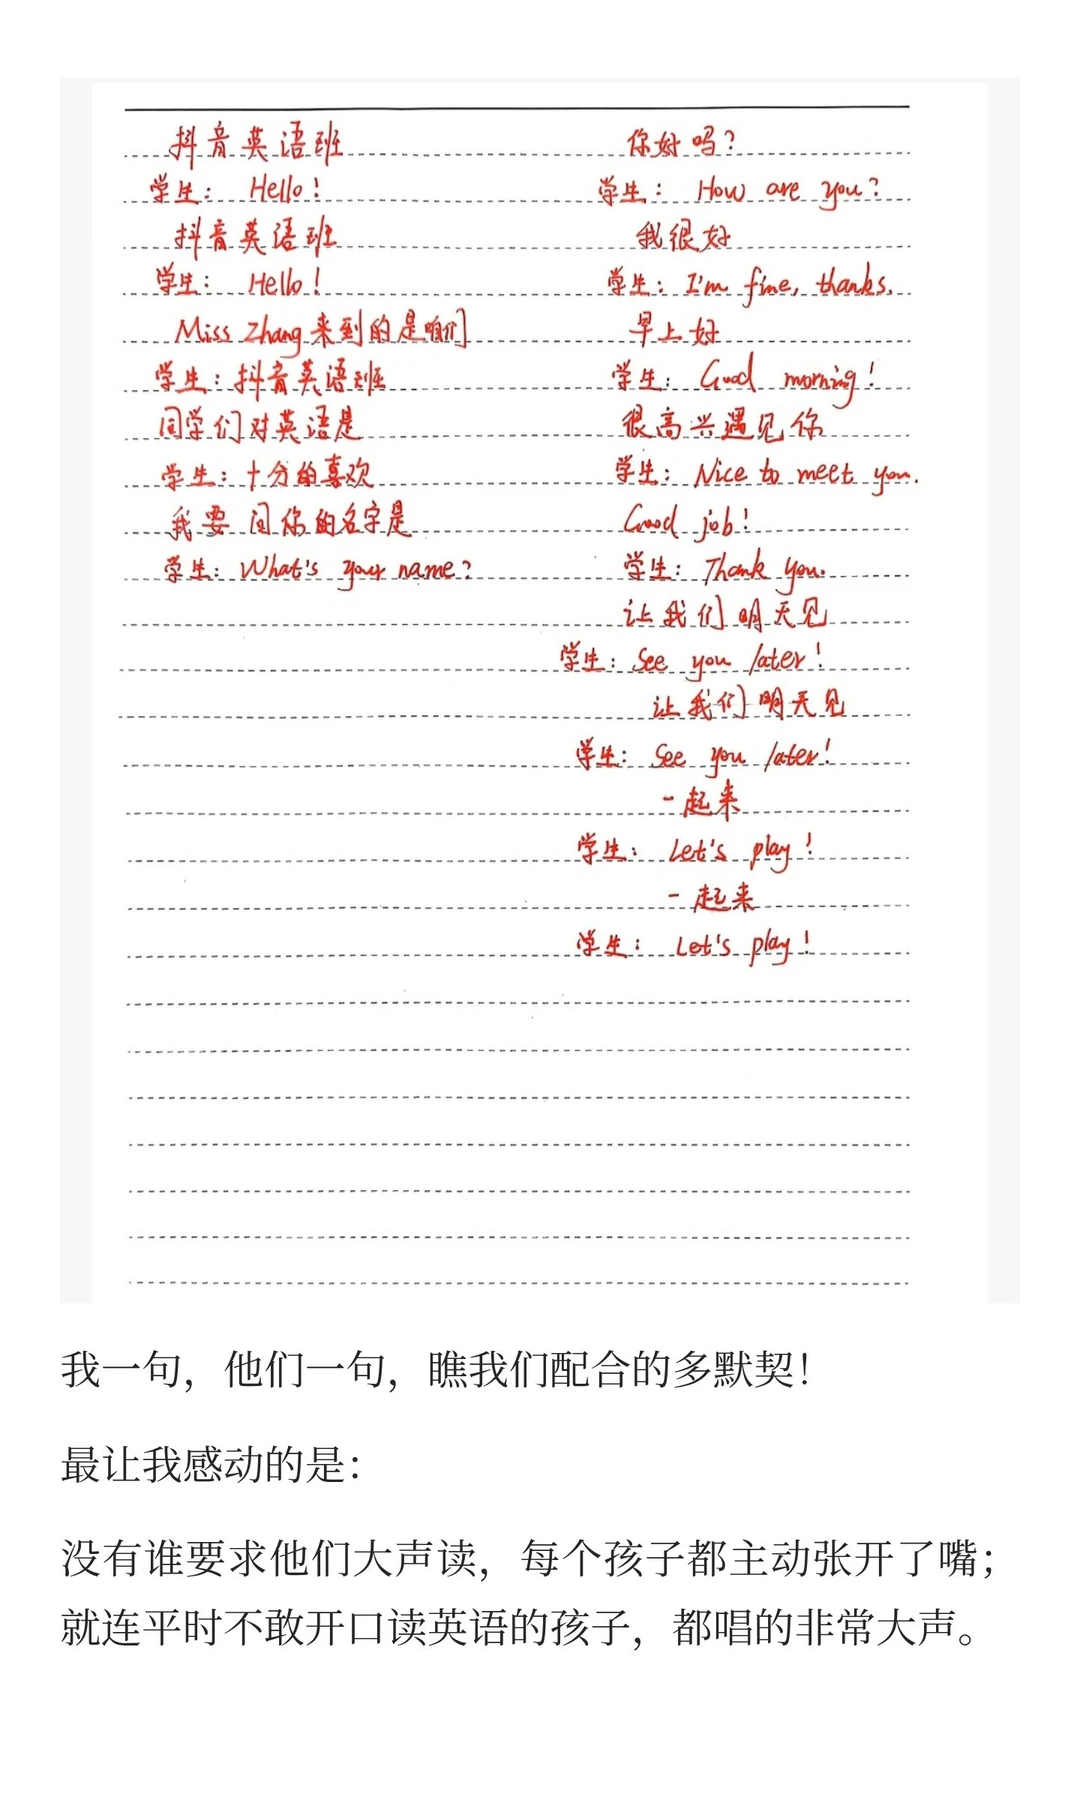 抖音英语班
学生： Hello！
抖音英语班
学生： Hello！
Miss Zhang来到的是咱们
学生：抖音英语班
同学们对英语是
学生：十分的喜欢
我要问你的名字是
学生：What's your name？
你好吗？
学生： How are you？
我很好
学生：I'm fine, thanks.
早上好
学生： Good morning！
很高兴遇见你
学生： Nice to meet you.
Good job！
学生： Thank you.
让我们明天见
学生：See you later！
让我们明天见
学生： See you later！
一起来
学生： Let's play！
一起来
学生： Let's play！
我一句，他们一句，瞧我们配合的多默契！
最让我感动的是：
没有谁要求他们大声读，每个孩子都主动张开了嘴；
就连平时不敢开口读英语的孩子，都唱的非常大声。